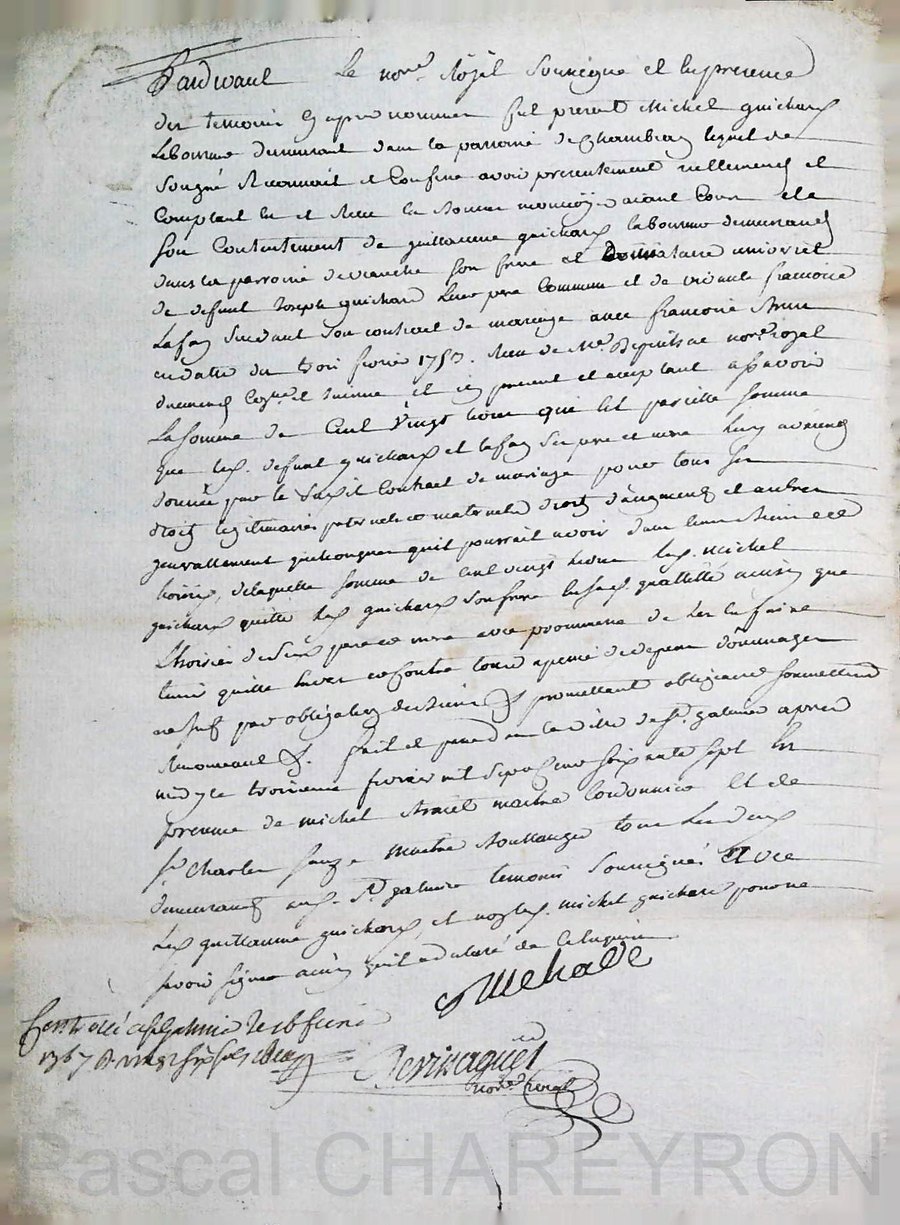 Pardevant Le no.re Royal Soussigné et en presence
des temoins cy apres nommes fut present Michel guichard
Laboureur demeurant dans la parroisse de Chambeon lequel de
Son gré Reconnait et Confesse avoir presentement reellement et
Comptant eu et Reçu en bonne monnoye aiant Cours et a
Son Contentement de guillaume guichard laboureur demeurant
dans la parroisse de son frere et Donnataire universel
de defunt Joseph guichard Leur pere Commun et de vivante francoise
Lafay Suivant Son contract de mariage avec francoise
en datte du trois fevrier 1757. Recu de M.e no.re royal
duement et icy present et acceptant assavoir
La Somme de Cent Vingt livres qui est pareille Somme
que les. defunt guichard et lafay Ses pere et mere luy avoient
donnée par le Susdit Contract de mariage pour tous Ses
droits legitimaires paternels et maternels droits d'augment et autres
generallement quelconques qu'il pourroit avoir dans leurs biens et
hoiries, de laquelle Somme de Cent vingt livres led. Michel
guichard quitte led. guichard Son frere lafay quallité ainsy que
L'hoirie de Ses pere et mere avec promesse de les en faire
tenir quitte envers et Contre tous a peine de depens dommages
par obligation de Biens & promettant obligeant Soumettant
Renonceant &. fait et passé en la ville de S.t galmier apres
midy le troisieme fevrier mil Sept Cent Soixante Sept En
presence de michel maitre Cordonnier Et de
S.r Charles maitre Boullanger tous les deux
demeurant aud. S.t galmier temoins Soussignés Avec
Led. guillaume guichard, et non led. michel guichard pour ne
Scavoir Signer ainsy qu'il a declaré de Ce Enquis
Contrôlé a S.t galmier le 16 fevrier
1767 Reçu six sols
no.re Royal
Pascal CHAREYRON